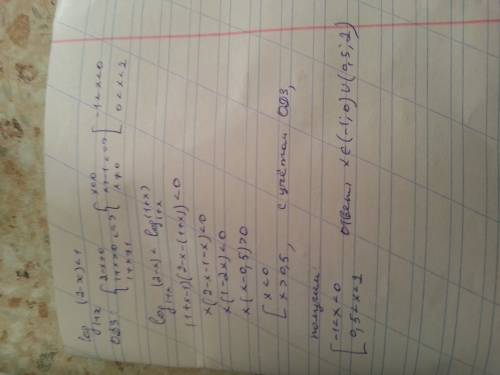 log₁₊ₓ(2-x)<1
ОДЗ: {2-x>0 1+x>0 1+x≠1 <=> {x<2 x>-1 x≠0 <=> [-1<x<0 0<x<2
log₁₊ₓ(2-x)<log₁₊ₓ(1+x)
(1+x-1)(2-x-(1+x))<0
x(2-x-1-x)<0
x(1-2x)<0
x(x-0,5)>0
[x<0 x>0,5, с учётом ОДЗ,
получим
[-1<x<0 0,5<x<2 Ответ: x∈(-1;0)∪(0,5;2)